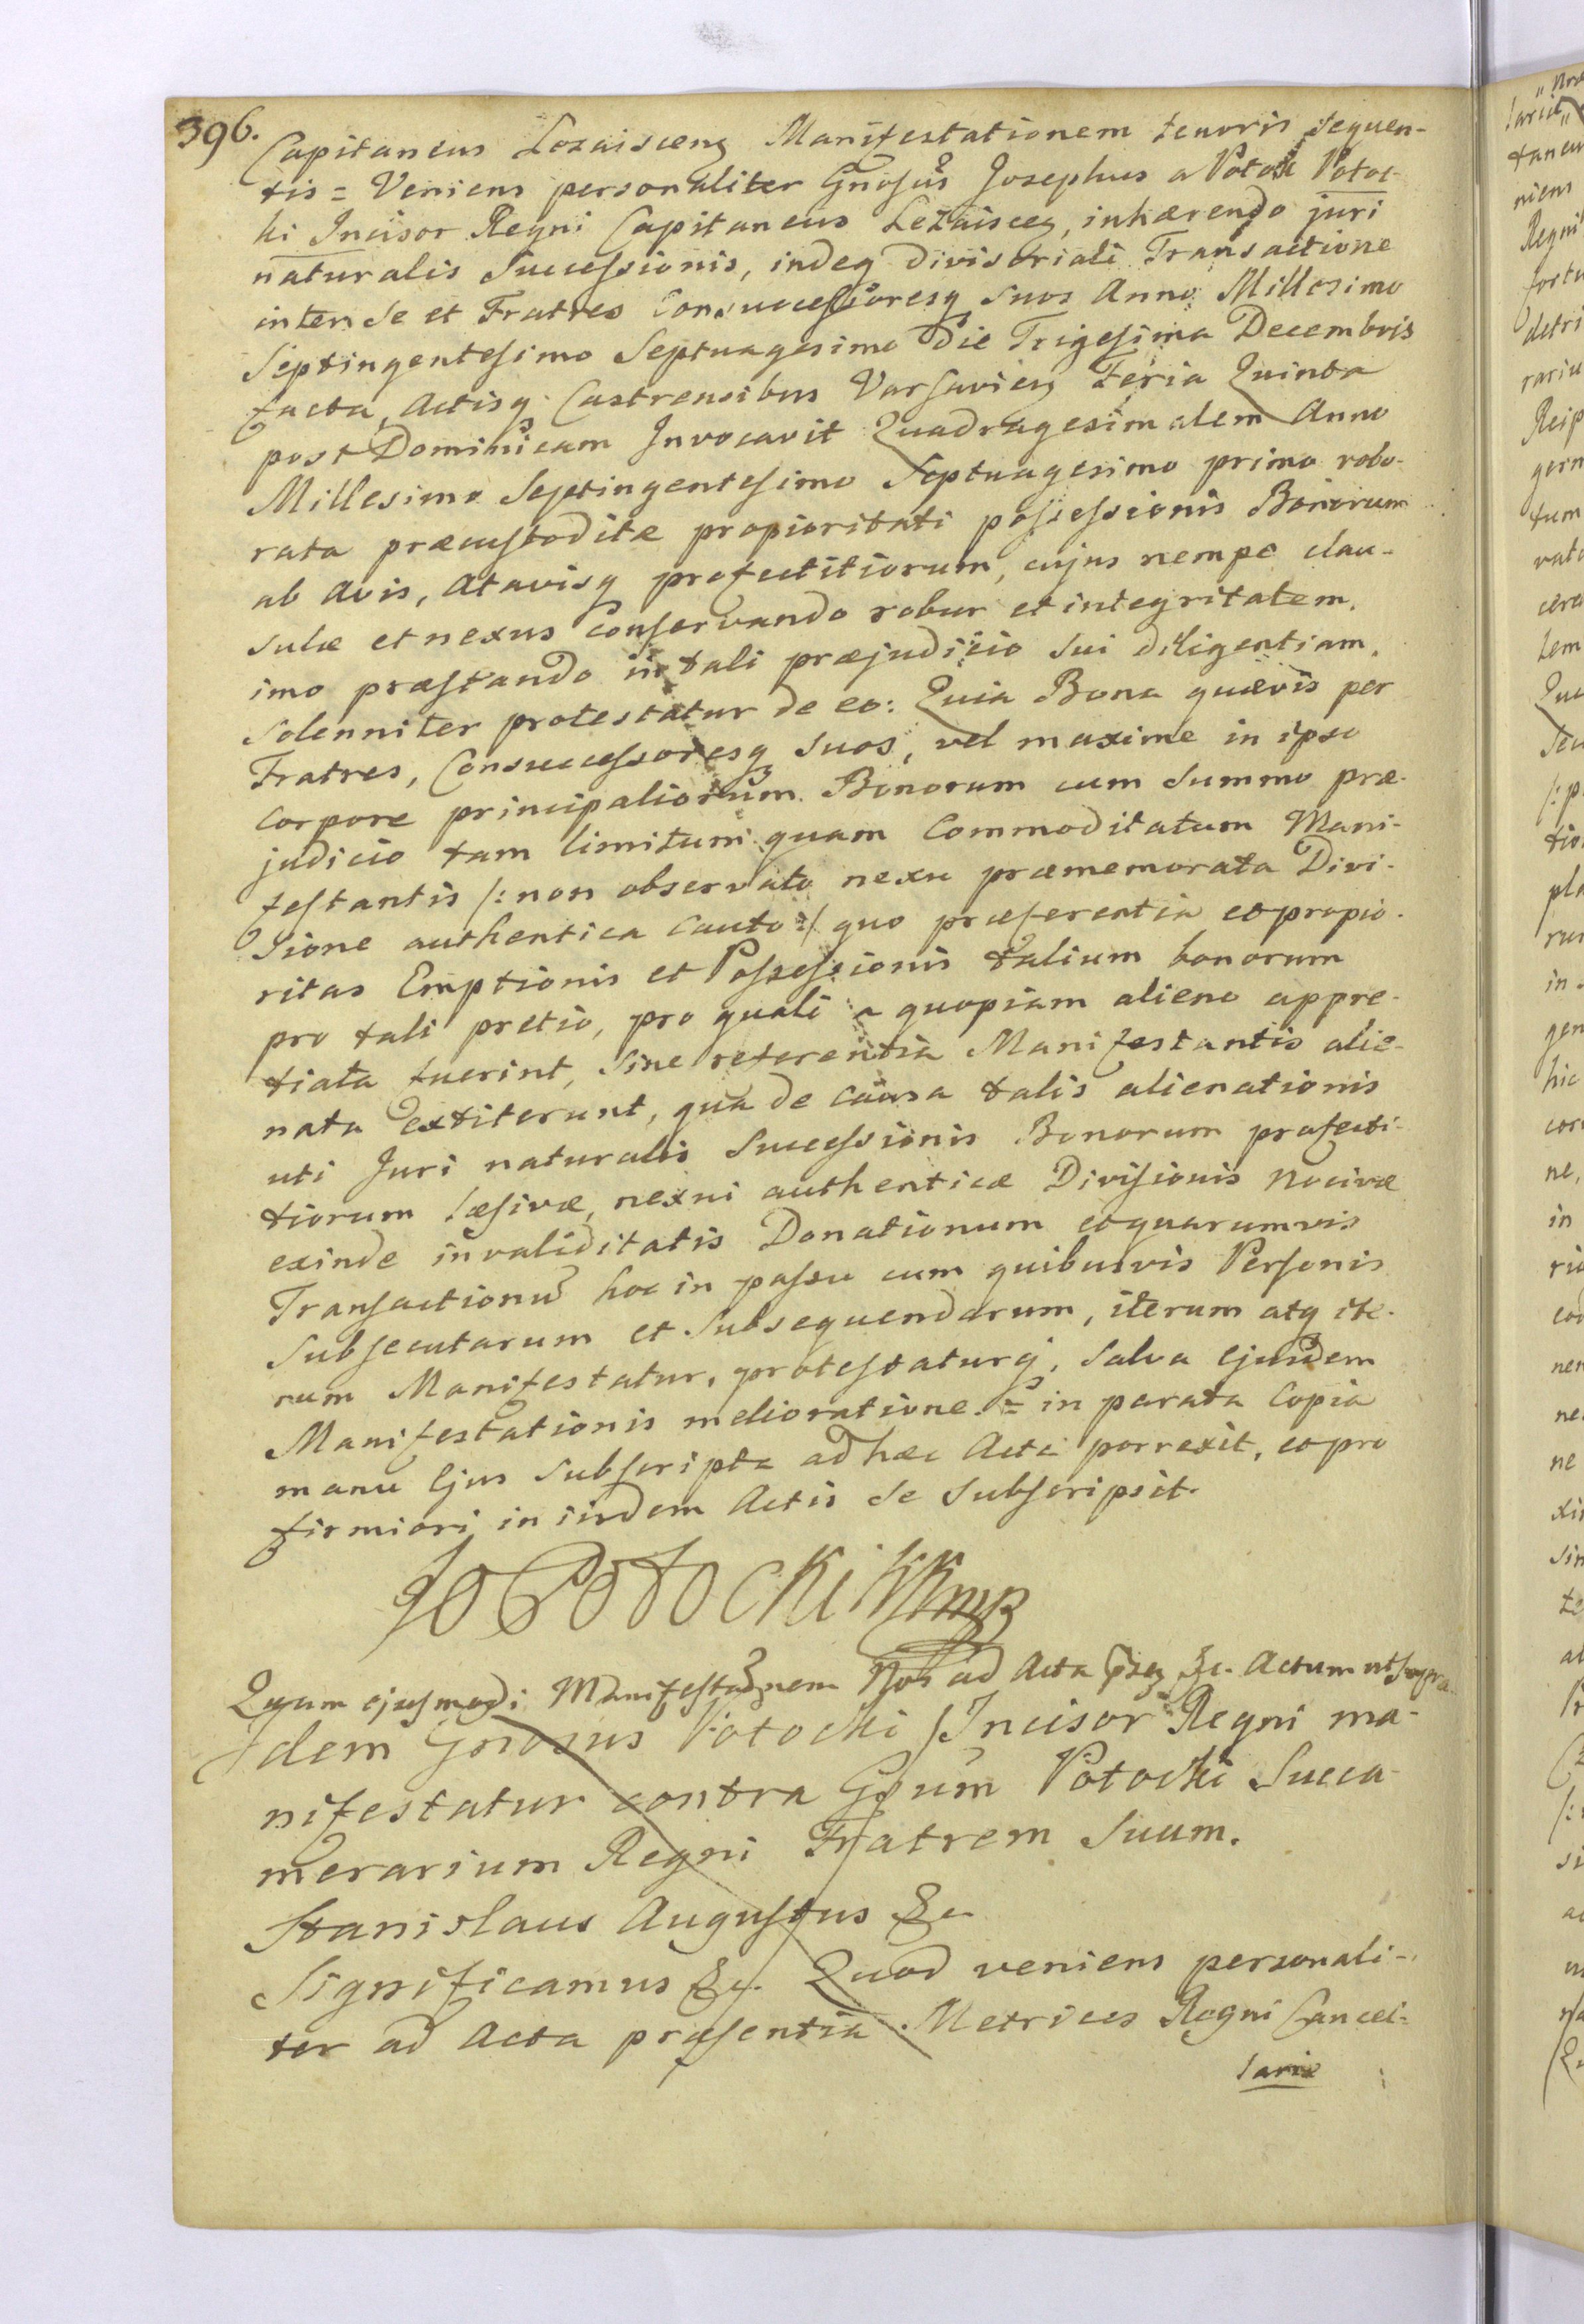 396.
Capitaneus Lezaiscens Manifestationem tenoris sequen-
tis = Veniens personaliter Gnosus Josephus a Potok Potoc-
ki Incisor Regni Capitaneus Lezaiscen, inhærendo juri
naturalis Successionis, indeq divisoriali Transactione
inter se et Fratres Consuccessoresq suos Anno Millesimo
Septingentesimo Septuagesimo Die Trigesima Decembris
facta, Actisq Castrensibus Varsavien Feria Quinta
post Dominicam Invocavit Quadragesimalem Anno
Millesimo Septingentesimo Septuagesimo primo robo-
rata præcustoditæ propioritati possessionis Bonorum
ab Avis, Atavisq profectitiorum, cujus nempe clau-
sulæ et nexus conservando robur et integritatem,
imo præstando in tali præjudicio sui diligentiam,
solenniter protestatur de eo: Quia Bona quævis per
Fratres, Consuccessoresq suos, vel maxime in ipso
corpore principaliorum Bonorum cum summo præ-
judicio tam limitum quam Commoditatum Mani-
festantis /: non observato nexu præmemorata Divi-
sione authentica cauto :/ quo præferentia et propio-
ritas Emptionis et Possessionis talium bonorum
pro tali pretio, pro quali a quopiam alieno appre-
tiata fuerint, sine referentia Manifestantis alie-
nata extiterunt, qua de causa talis alienationis
uti Juri naturalis Successionis Bonorum profecti-
tiorum læsivæ, nexui authenticæ Divisionis nocivæ
exinde invaliditatis Donationum et quarumvis
Transactionu hoc in passu cum quibusvis Personis
subsecutarum et subsequendarum, iterum atq ite-
rum Manifestatur, protestaturq, salva ejusdem
Manifestationis melioratione. = in parata Copia
manu Ejus subscripta ad hæc Acta porrexit, et pro
firmiori in iisdem Actis se subscripsit.
Jo Potocki KKmp
Quam ejusmodi Manifestaonem Nos ad Acta pns &c. Actum ut supra.
Idem Gnosus Potocki Incisor Regni ma-
nifestatur contra Gsum Potocki Succa-
merarium Regni Fratrem suum.
Stanislaus Augustus &c
Significamus &c. Quod veniens personali-
ter ad Acta præsentia Metrices Regni Cancel-
lariæ